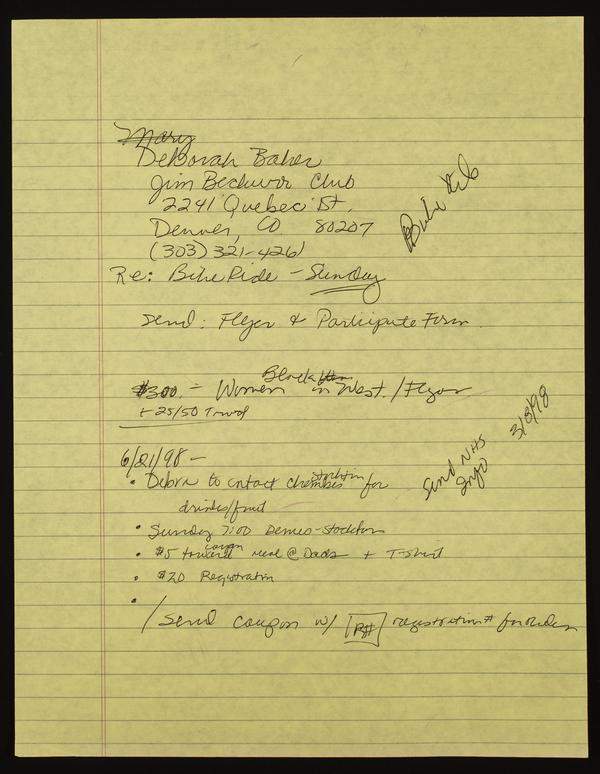 Mary
Deborah Baker
Jim Beckwourth Club
2241 Quebec St.
Denver, CO 80207
(303) 321-4261
Bike Ride
Re: Bike Ride - Sunday
Send: Flyer & Participate Form
Black
$300. - Women in West. / Flyer
+ 25/50
3/8/98
Send NHS
Info
6/21/98 -
• Debra to contact for
drinks/fruit
• Sunday 7:00 Demis-Stockton
coupon
• $5 toward meal @ Dads + T-shirt
• $20 Registration
•
/ Send coupon w/ registration # for rides